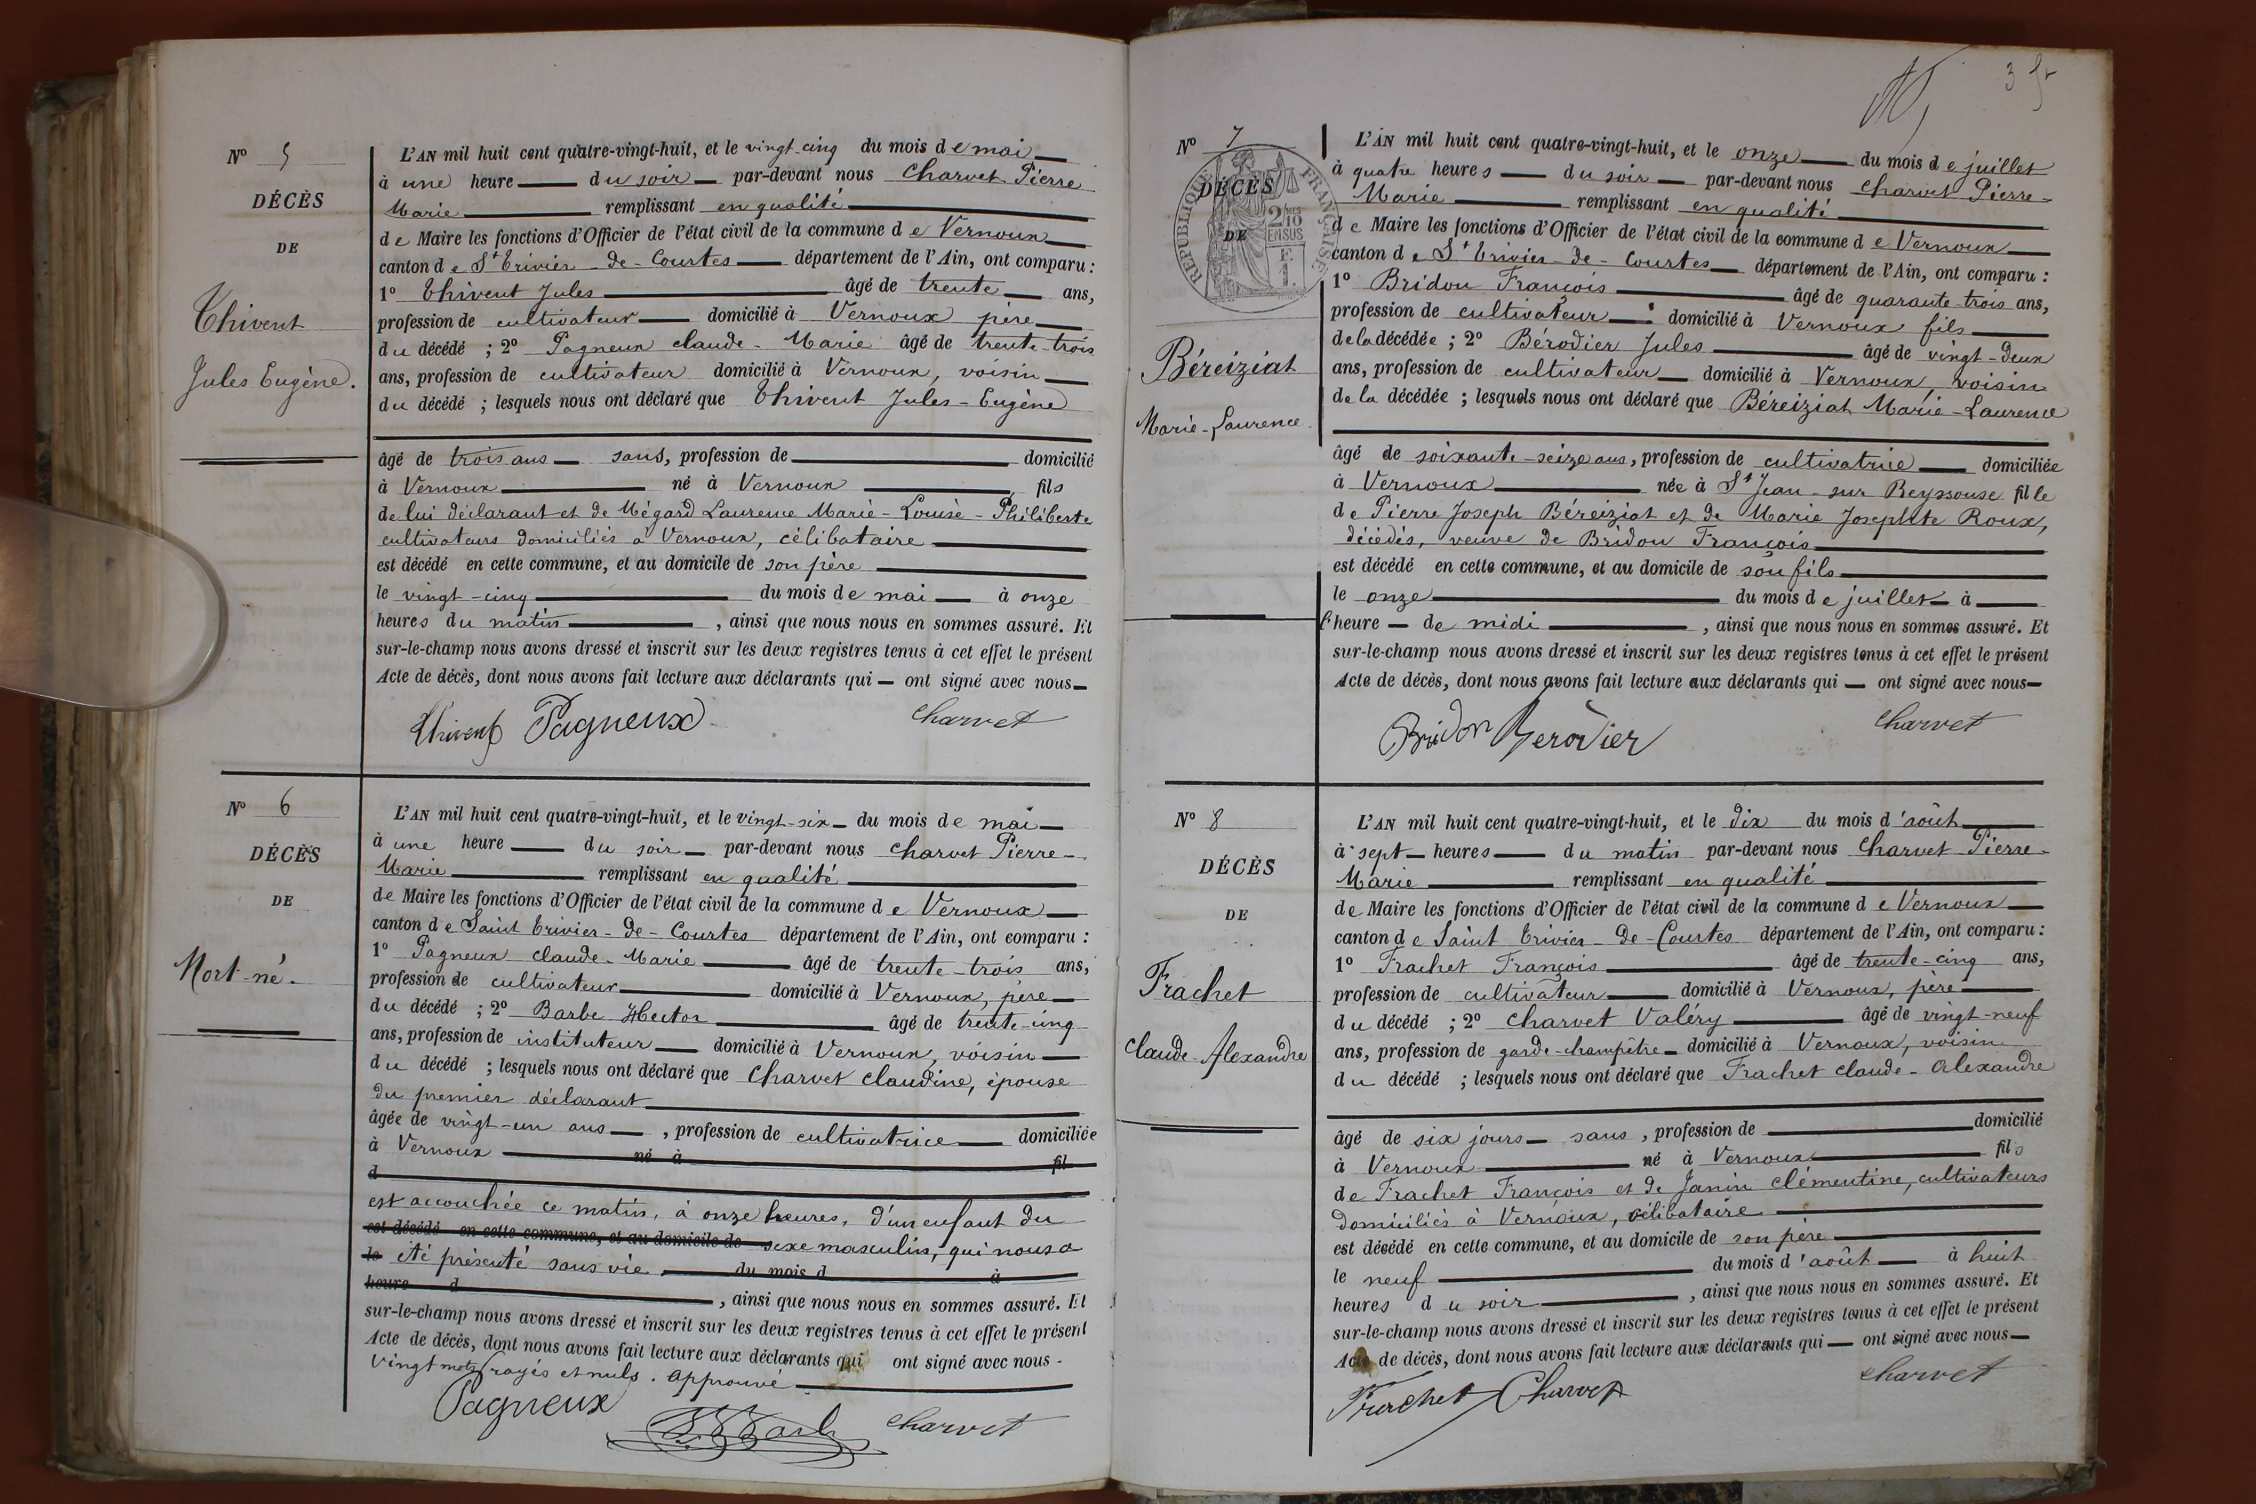 N° 5
DÉCÈS
DE
Thivent
Jules Eugène.
L'AN mil huit cent quatre-vingt-huit, et le vingt-cinq du mois de mai
à une heure du soir par-devant nous Charvet Pierre
Marie remplissant en qualité
de Maire les fonctions d'Officier de l'état civil de la commune de Vernoux
canton de St Trivier-de-Courtes département de l'Ain, ont comparu :
1° Thivent Jules âgé de trente ans,
profession de cultivateur domicilié à Vernoux père
du décédé ; 2° Pagneux claude-Marie âgé de trente-trois
ans, profession de cultivateur domicilié à Vernoux, voisin
du décédé ; lesquels nous ont déclaré que Thivent Jules-Eugène
âgé de trois ans sans, profession de domicilié
à Vernoux né à Vernoux fils
de lui déclarant et de Mégard Laurence Marie-Louise-Philiberte
cultivateurs domiciliés à Vernoux, célibataire
est décédé en cette commune, et au domicile de son père
le vingt-cinq du mois de mai à onze
heures du matin, ainsi que nous nous en sommes assuré. Et
sur-le-champ nous avons dressé et inscrit sur les deux registres tenus à cet effet le présent
Acte de décès, dont nous avons fait lecture aux déclarants qui ont signé avec nous
Thivent Pagneux charvet
N° 6
DÉCÈS
DE
Mort-né.
L'AN mil huit cent quatre-vingt-huit, et le vingt-six du mois de mai
à une heure du soir par-devant nous charvet Pierre-
Marie remplissant en qualité
de Maire les fonctions d'Officier de l'état civil de la commune de Vernoux
canton de Saint Trivier-de-Courtes département de l'Ain, ont comparu :
1° Pagneux claude-Marie âgé de trente-trois ans,
profession de cultivateur domicilié à Vernoux, père
du décédé ; 2° Barbe Hector âgé de trente-cinq
ans, profession de instituteur domicilié à Vernoux, voisin
du décédé ; lesquels nous ont déclaré que Charvet claudine, épouse
du premier déclarant
âgée de vingt-un ans, profession de cultivatrice domiciliée
à Vernoux né à fil
d
est accouchée ce matin, à onze heures, d'un enfant du
est décédé en cette commune, et au domicile de sexe masculin, qui nous a
le été présenté sans vie. du mois d à
heure d , ainsi que nous nous en sommes assuré. Et
sur-le-champ nous avons dressé et inscrit sur les deux registres tenus à cet effet le présent
Acte de décès, dont nous avons fait lecture aux déclarants qui ont signé avec nous.
Vingt mots rayés et nuls. approuvé
Pagneux charvet
3
N° 7
DÉCÈS
DE
RÉPUBLIQUE FRANÇAISE
2/10
EN SUS
F.
1.
Béreiziat
Marie-Laurence.
L'AN mil huit cent quatre-vingt-huit, et le onze du mois de juillet
à quatre heures du soir par-devant nous charvet Pierre-
Marie remplissant en qualité
de Maire les fonctions d'Officier de l'état civil de la commune de Vernoux
canton de St Trivier-de-Courtes département de l'Ain, ont comparu :
1° Bridon François âgé de quarante-trois ans,
profession de cultivateur domicilié à Vernoux fils
de la décédée ; 2° Bérodier Jules âgé de vingt-deux
ans, profession de cultivateur domicilié à Vernoux, voisin
de la décédée ; lesquels nous ont déclaré que Béreiziat Marie-Laurence
âgé de soixante-seize ans, profession de cultivatrice domiciliée
à Vernoux née à St Jean-sur Reyssouse fille
de Pierre Joseph Béreiziat et de Marie Josephte Roux,
décédés, veuve de Bridon François
est décédé en cette commune, et au domicile de son fils
le onze du mois de juillet à
l'heure de midi, ainsi que nous nous en sommes assuré. Et
sur-le-champ nous avons dressé et inscrit sur les deux registres tenus à cet effet le présent
Acte de décès, dont nous avons fait lecture aux déclarants qui ont signé avec nous
Bridon Berodier charvet
N° 8
DÉCÈS
DE
Frachet
Claude-Alexandre
L'AN mil huit cent quatre-vingt-huit, et le dix du mois d'août
à sept heures du matin par-devant nous Charvet Pierre-
Marie remplissant en qualité
de Maire les fonctions d'Officier de l'état civil de la commune de Vernoux
canton de Saint Trivier-de-Courtes département de l'Ain, ont comparu :
1° Frachet François âgé de trente-cinq ans,
profession de cultivateur domicilié à Vernoux, père
du décédé ; 2° Charvet Valéry âgé de vingt-neuf
ans, profession de garde-champêtre domicilié à Vernoux, voisin
du décédé ; lesquels nous ont déclaré que Frachet claude-Alexandre
âgé de six jours sans, profession de domicilié
à Vernoux né à Vernoux fils
de Frachet François et de Janin Clémentine, cultivateurs
domiciliés à Vernoux, célibataire
est décédé en cette commune, et au domicile de son père
le neuf du mois d'août à huit
heures du soir, ainsi que nous nous en sommes assuré. Et
sur-le-champ nous avons dressé et inscrit sur les deux registres tenus à cet effet le présent
Acte de décès, dont nous avons fait lecture aux déclarants qui ont signé avec nous
Frachet Charvet charvet